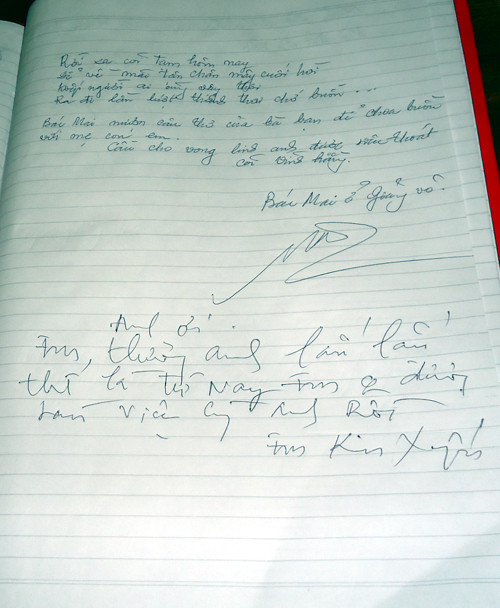 Rời xa cõi tạm hôm nay
Để về mãi tận chân mây cuối trời
Kiếp người ai cũng vậy thôi
Ra đi lần lượt thảnh thơi chớ buồn ...
Bác Mai mượn câu thơ của bà bạn để "chia buồn
với mẹ con em
Cầu cho vong linh anh được siêu thoát
cõi vĩnh hằng.
Bác Mai ở Giảng võ.
Anh ơi.
Em, thương anh lắm lắm
thế là từ nay Em o được
làm việc cùng Anh Rồi
Em Kim Xuyến